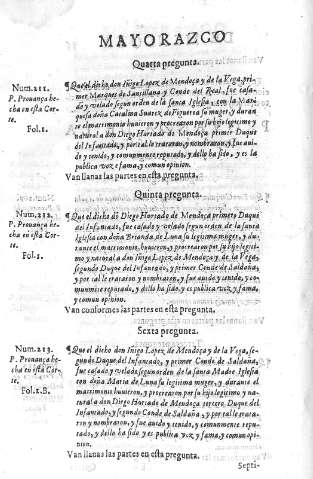 MAYORAZCO
Quarta pregunta.
Num.211.
P. Prouança he-
cha en esta Cor-
te.
Fol.1.
Que el dicho don Iñigo Lopez de Mendoça y de la Vega, pri-
mer Marques de Santillana y Conde del Real, fue casa-
do y velado segun orden de la santa Iglesia, con la Marq̃-
sa doña Catalina Suarez de Figueroa su muger, y duran-
te el matrimonio huuieron y procrearon por su hijo legitimo y
natural a don Diego Hurtado de Mendoça primer Duque
del Infantado, y por tal le trataron, y nombraron, y fue aui-
do y tenido, y comunmente reputado, y dello ha sido, y es la
publica voz y fama, y comun opinion.
Van llanas las partes en esta pregunta.
Quinta pregunta.
Num.212.
P. Prouança he-
cha en esta Cor-
te.
Fol.1.
Que el dicho dõ Diego Hurtado de Mendoça primero Duque
del Infantado, fue casado y velado segun orden de la santa
Iglesia con doña Brianda de Luna su legitima muger, y du-
rante el matrimonio huuieron, y procrearon por su hijo legiti-
mo y natural a don Iñigo Lopez de Mendoça y de la Vega,
segundo Duque del Infantado, y primer Conde de Saldaña, y
por tal le trataron y nombraron, y fue auido y tenido, y co-
munmente reputado, y dello ha sido y es publica voz y fama, y
comun opinion.
Van conformes las partes en esta pregunta.
Sexta pregunta.
Num.213.
P. Prouança he-
cha en esta Cor-
te.
Fol.1.B.
Que el dicho don Iñigo Lopez de Mendoça y de la Vega, se-
gundo Duque del Infantado, y primer Conde de Saldaña,
fue casado y velado segun orden de la santa Madre Iglesia
con doña Maria de Luna su legitima muger, y durante el
matrimonio huuieron, y procrearon por su hijo legitimo y na-
tural a don Diego Hurtado de Mendoça tercero Duque del
Infantado, y segundo Conde de Saldaña, y por tal le trata-
ron y nombraron, y fue auido y tenido, y comunmente repu-
tado, y dello ha sido y es publica voz y fama, y comun opi-
nion.
Van llanas las partes en esta pregunta.
Septi-